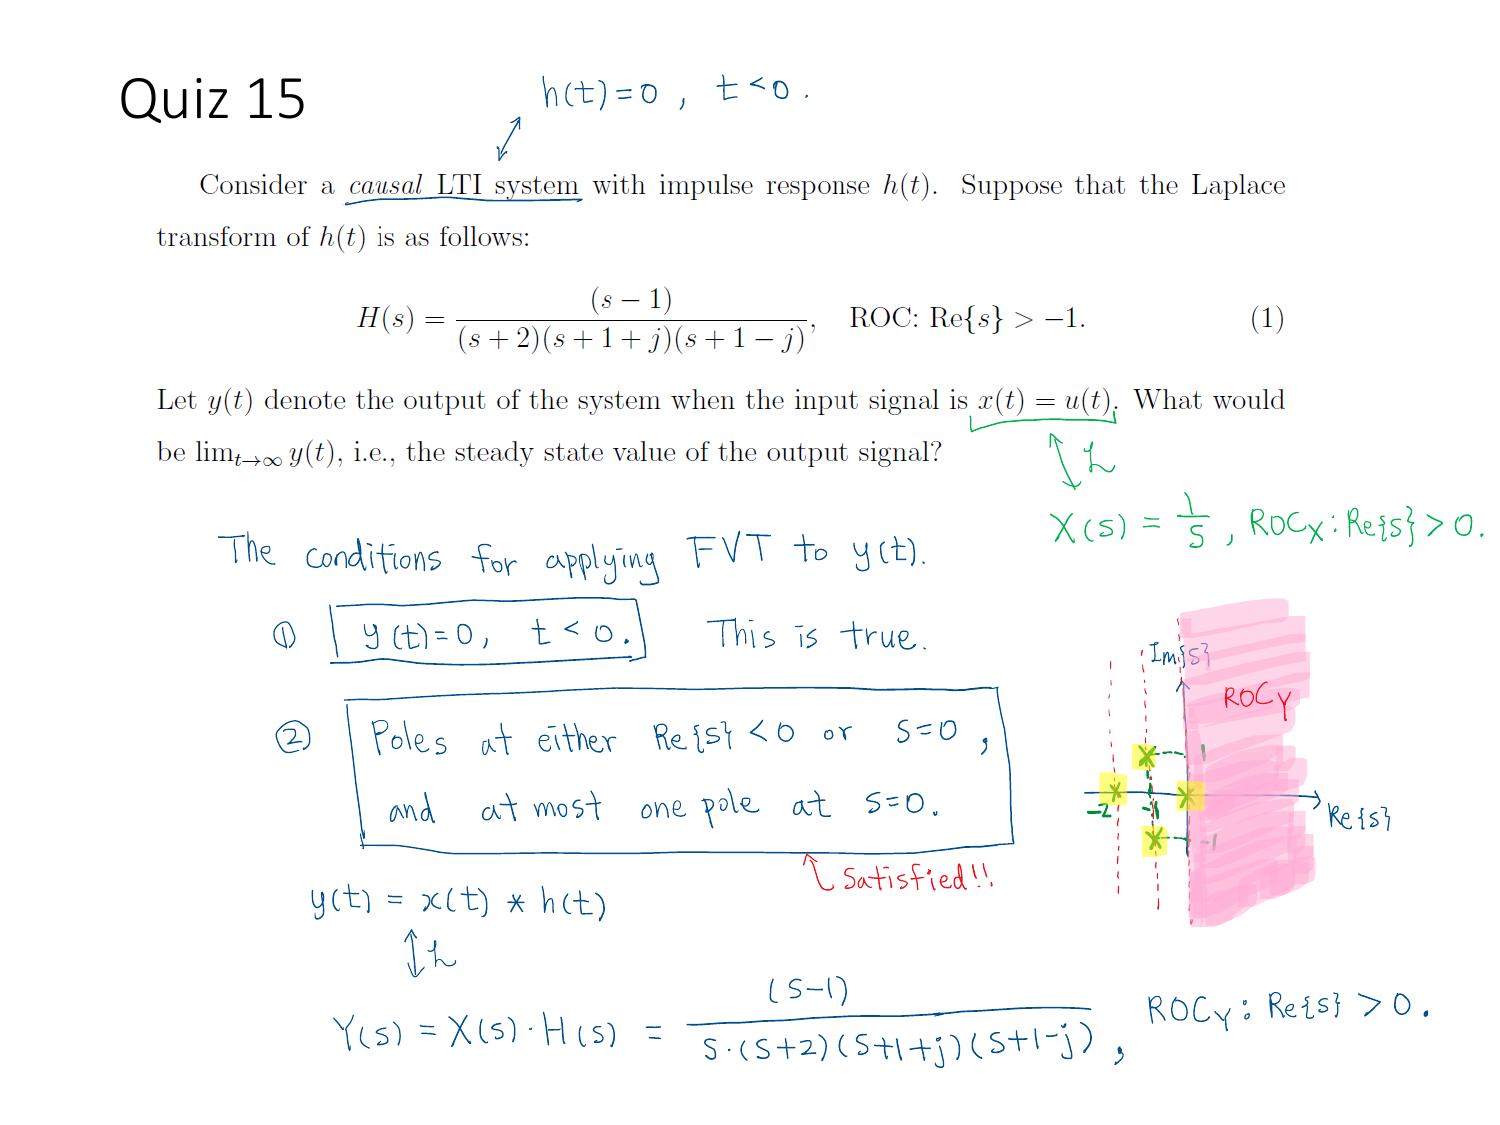 Quiz 15
h(t)=0, t<0.
Consider a causal LTI system with impulse response h(t). Suppose that the Laplace
transform of h(t) is as follows:
H(s) = (s − 1) / (s + 2)(s + 1 + j)(s + 1 − j), ROC: Re{s} > −1. (1)
Let y(t) denote the output of the system when the input signal is x(t) = u(t). What would
be lim_{t→∞} y(t), i.e., the steady state value of the output signal?
L
X(s) = 1/s, ROC_X: Re{s} > 0.
The conditions for applying FVT to y(t).
① y(t)=0, t<0. This is true.
② Poles at either Re{s}<0 or s=0,
and at most one pole at s=0.
Satisfied!!
Im{s}
ROC_Y
1
-2 -1
Re{s}
-1
y(t) = x(t) * h(t)
L
Y(s) = X(s)·H(s) = (s-1) / s·(s+2)(s+1+j)(s+1-j), ROC_Y: Re{s} > 0.